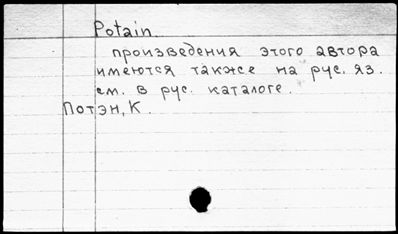 Potain.
произведения этого автора
имеются также на рус. яз.
см. в рус. каталоге.
Потэн, К.